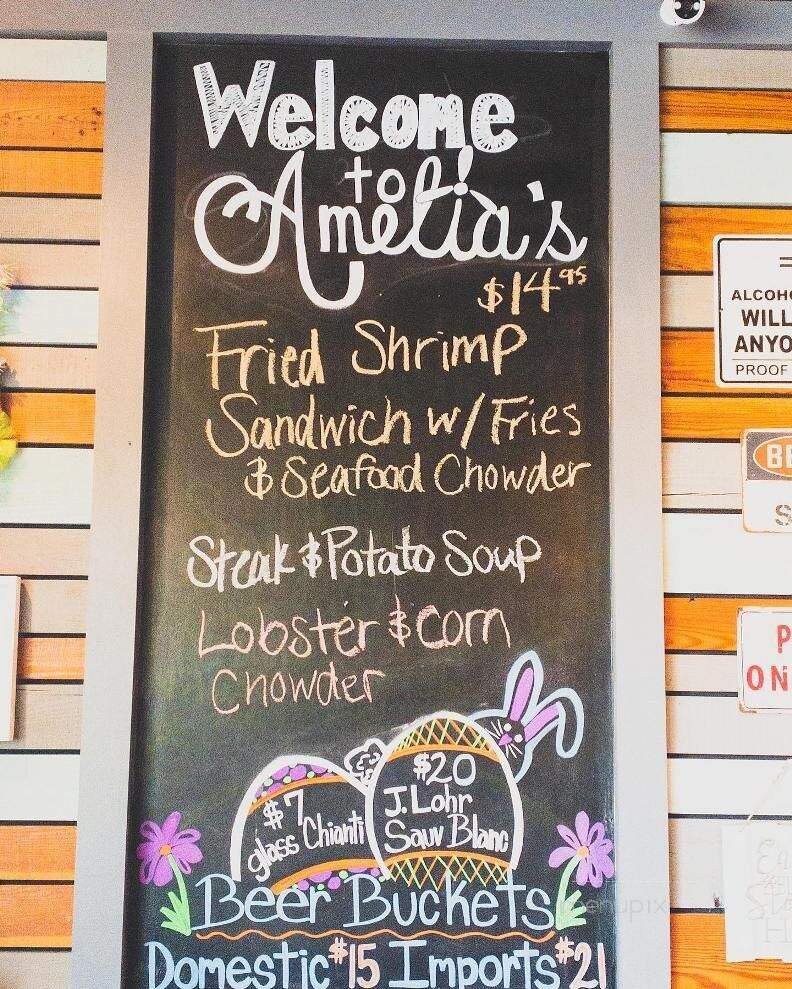 Welcome
to
Amelia's
$14.95
Fried Shrimp
Sandwich w/ Fries
& Seafood Chowder
Steak & Potato Soup
Lobster & Corn
Chowder
$7
glass Chianti
$20
J. Lohr
Sauv Blanc
Beer Buckets
Domestic $15 Imports $21
ALCOHO
WILL
ANYO
PROOF
BE
S
P
ON
menupix